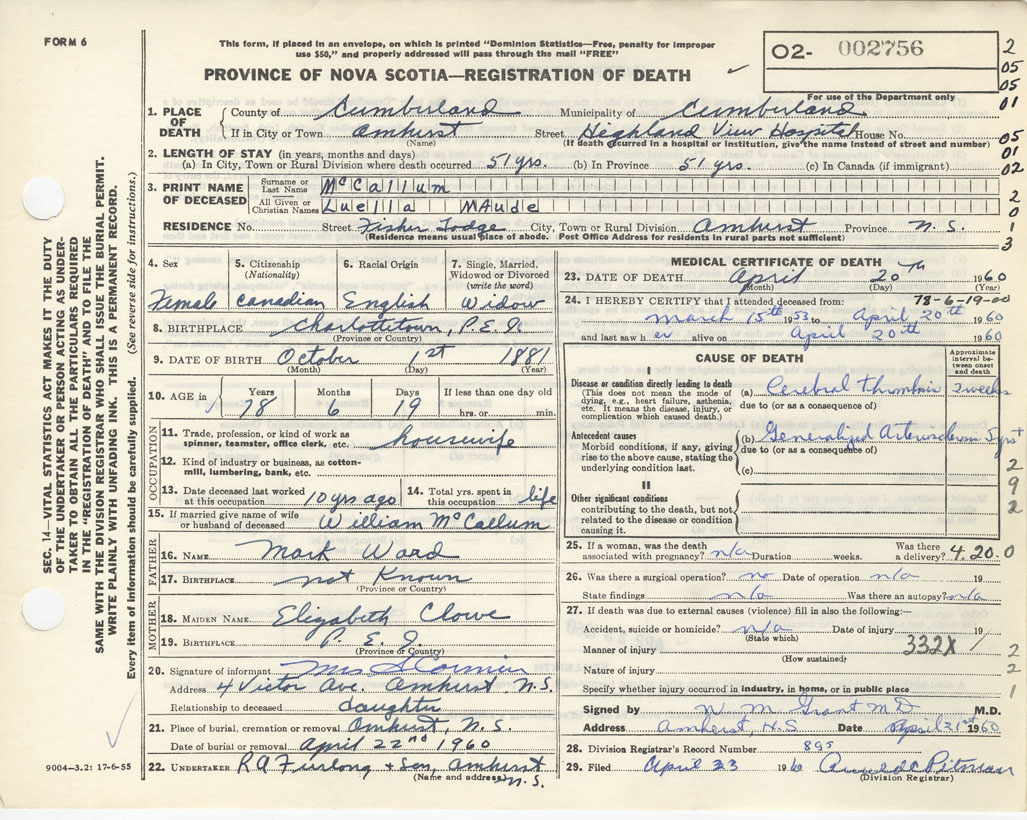 FORM 6
This form, if placed in an envelope, on which is printed "Dominion Statistics—Free, penalty for improper
use $50," and properly addressed will pass through the mail "FREE"
PROVINCE OF NOVA SCOTIA—REGISTRATION OF DEATH
02- 002756
For use of the Department only
2
05
05
01
05
01
02
2
0
1
3
1. PLACE OF DEATH County of Cumberland Municipality of Cumberland
If in City or Town Amhurst Street Highland View Hospital House No.
(Name) (If death occurred in a hospital or institution, give the name instead of street and number)
2. LENGTH OF STAY (in years, months and days)
(a) In City, Town or Rural Division where death occurred 51 yrs. (b) In Province 51 yrs. (c) In Canada (if immigrant)
3. PRINT NAME OF DECEASED Surname or Last Name McCallum
All Given or Christian Names Luella MAude
RESIDENCE No. Street Fisher Lodge City, Town or Rural Division Amhurst Province N.S.
(Residence means usual place of abode. Post Office Address for residents in rural parts not sufficient)
4. Sex Female
5. Citizenship (Nationality) Canadian
6. Racial Origin English
7. Single, Married, Widowed or Divorced (write the word) Widow
8. BIRTHPLACE Charlottetown, P.E.I.
(Province or Country)
9. DATE OF BIRTH October 1st 1881
(Month) (Day) (Year)
10. AGE in Years 78 Months 6 Days 19 If less than one day
hrs. or min.
OCCUPATION
11. Trade, profession, or kind of work as spinner, teamster, office clerk, etc. housewife
12. Kind of industry or business, as cotton-
mill, lumbering, bank, etc.
13. Date deceased last worked at this occupation 10 yrs ago 14. Total yrs. spent in this occupation life
15. If married give name of wife or husband of deceased William McCallum
FATHER
16. NAME Mark Ward
17. BIRTHPLACE not Known
(Province or Country)
MOTHER
18. MAIDEN NAME Elizabeth Clowe
19. BIRTHPLACE P.E.I.
(Province or Country)
20. Signature of informant Mrs S Cormier
Address 4 Victor Ave. Amhurst N.S.
Relationship to deceased daughter
21. Place of burial, cremation or removal Amhurst, N.S.
Date of burial or removal April 22nd 1960
22. UNDERTAKER R A Furlong + Son, Amhurst
(Name and address) N.S.
MEDICAL CERTIFICATE OF DEATH
23. DATE OF DEATH April 20th 1960
(Month) (Day) (Year)
24. I HEREBY CERTIFY that I attended deceased from: 78-6-19-00
March 15th 1953 to April 20th 1960
and last saw her alive on April 20th 1960
CAUSE OF DEATH
Approximate interval between onset and death
I
Disease or condition directly leading to death
(This does not mean the mode of
dying, e.g., heart failure, asthenia,
etc. It means the disease, injury, or
complication which caused death.)
(a) Cerebral thrombosis 2 weeks
due to (or as a consequence of)
Antecedent causes
Morbid conditions, if any, giving
rise to the above cause, stating the
underlying condition last.
(b) Generalized Arteriosclerosis 5 yrs+
due to (or as a consequence of)
(c)
II
Other significant conditions
contributing to the death, but not
related to the disease or condition
causing it.
2
9
2
25. If a woman, was the death associated with pregnancy? n/a Duration weeks. Was there a delivery? 4.20.0
26. Was there a surgical operation? no Date of operation n/a 19
State findings n/a Was there an autopsy? n/a
27. If death was due to external causes (violence) fill in also the following:—
Accident, suicide or homicide? n/a Date of injury 19
(State which)
Manner of injury 332X 2
(How sustained)
Nature of injury 2
Specify whether injury occurred in industry, in home, or in public place 1
Signed by W. M Grant M.D M.D.
Address Amherst, N.S Date April 21st 1960
28. Division Registrar's Record Number 895
29. Filed April 23 1960 Pitman
(Division Registrar)
SEC. 14—VITAL STATISTICS ACT MAKES IT THE DUTY
OF THE UNDERTAKER OR PERSON ACTING AS UNDER-
TAKER TO OBTAIN ALL THE PARTICULARS REQUIRED
IN THE "REGISTRATION OF DEATH" AND TO FILE THE
SAME WITH THE DIVISION REGISTRAR WHO SHALL ISSUE THE BURIAL PERMIT.
WRITE PLAINLY WITH UNFADING INK. THIS IS A PERMANENT RECORD.
Every item of information should be carefully supplied. (See reverse side for instructions.)
9004-3.2: 17-6-55